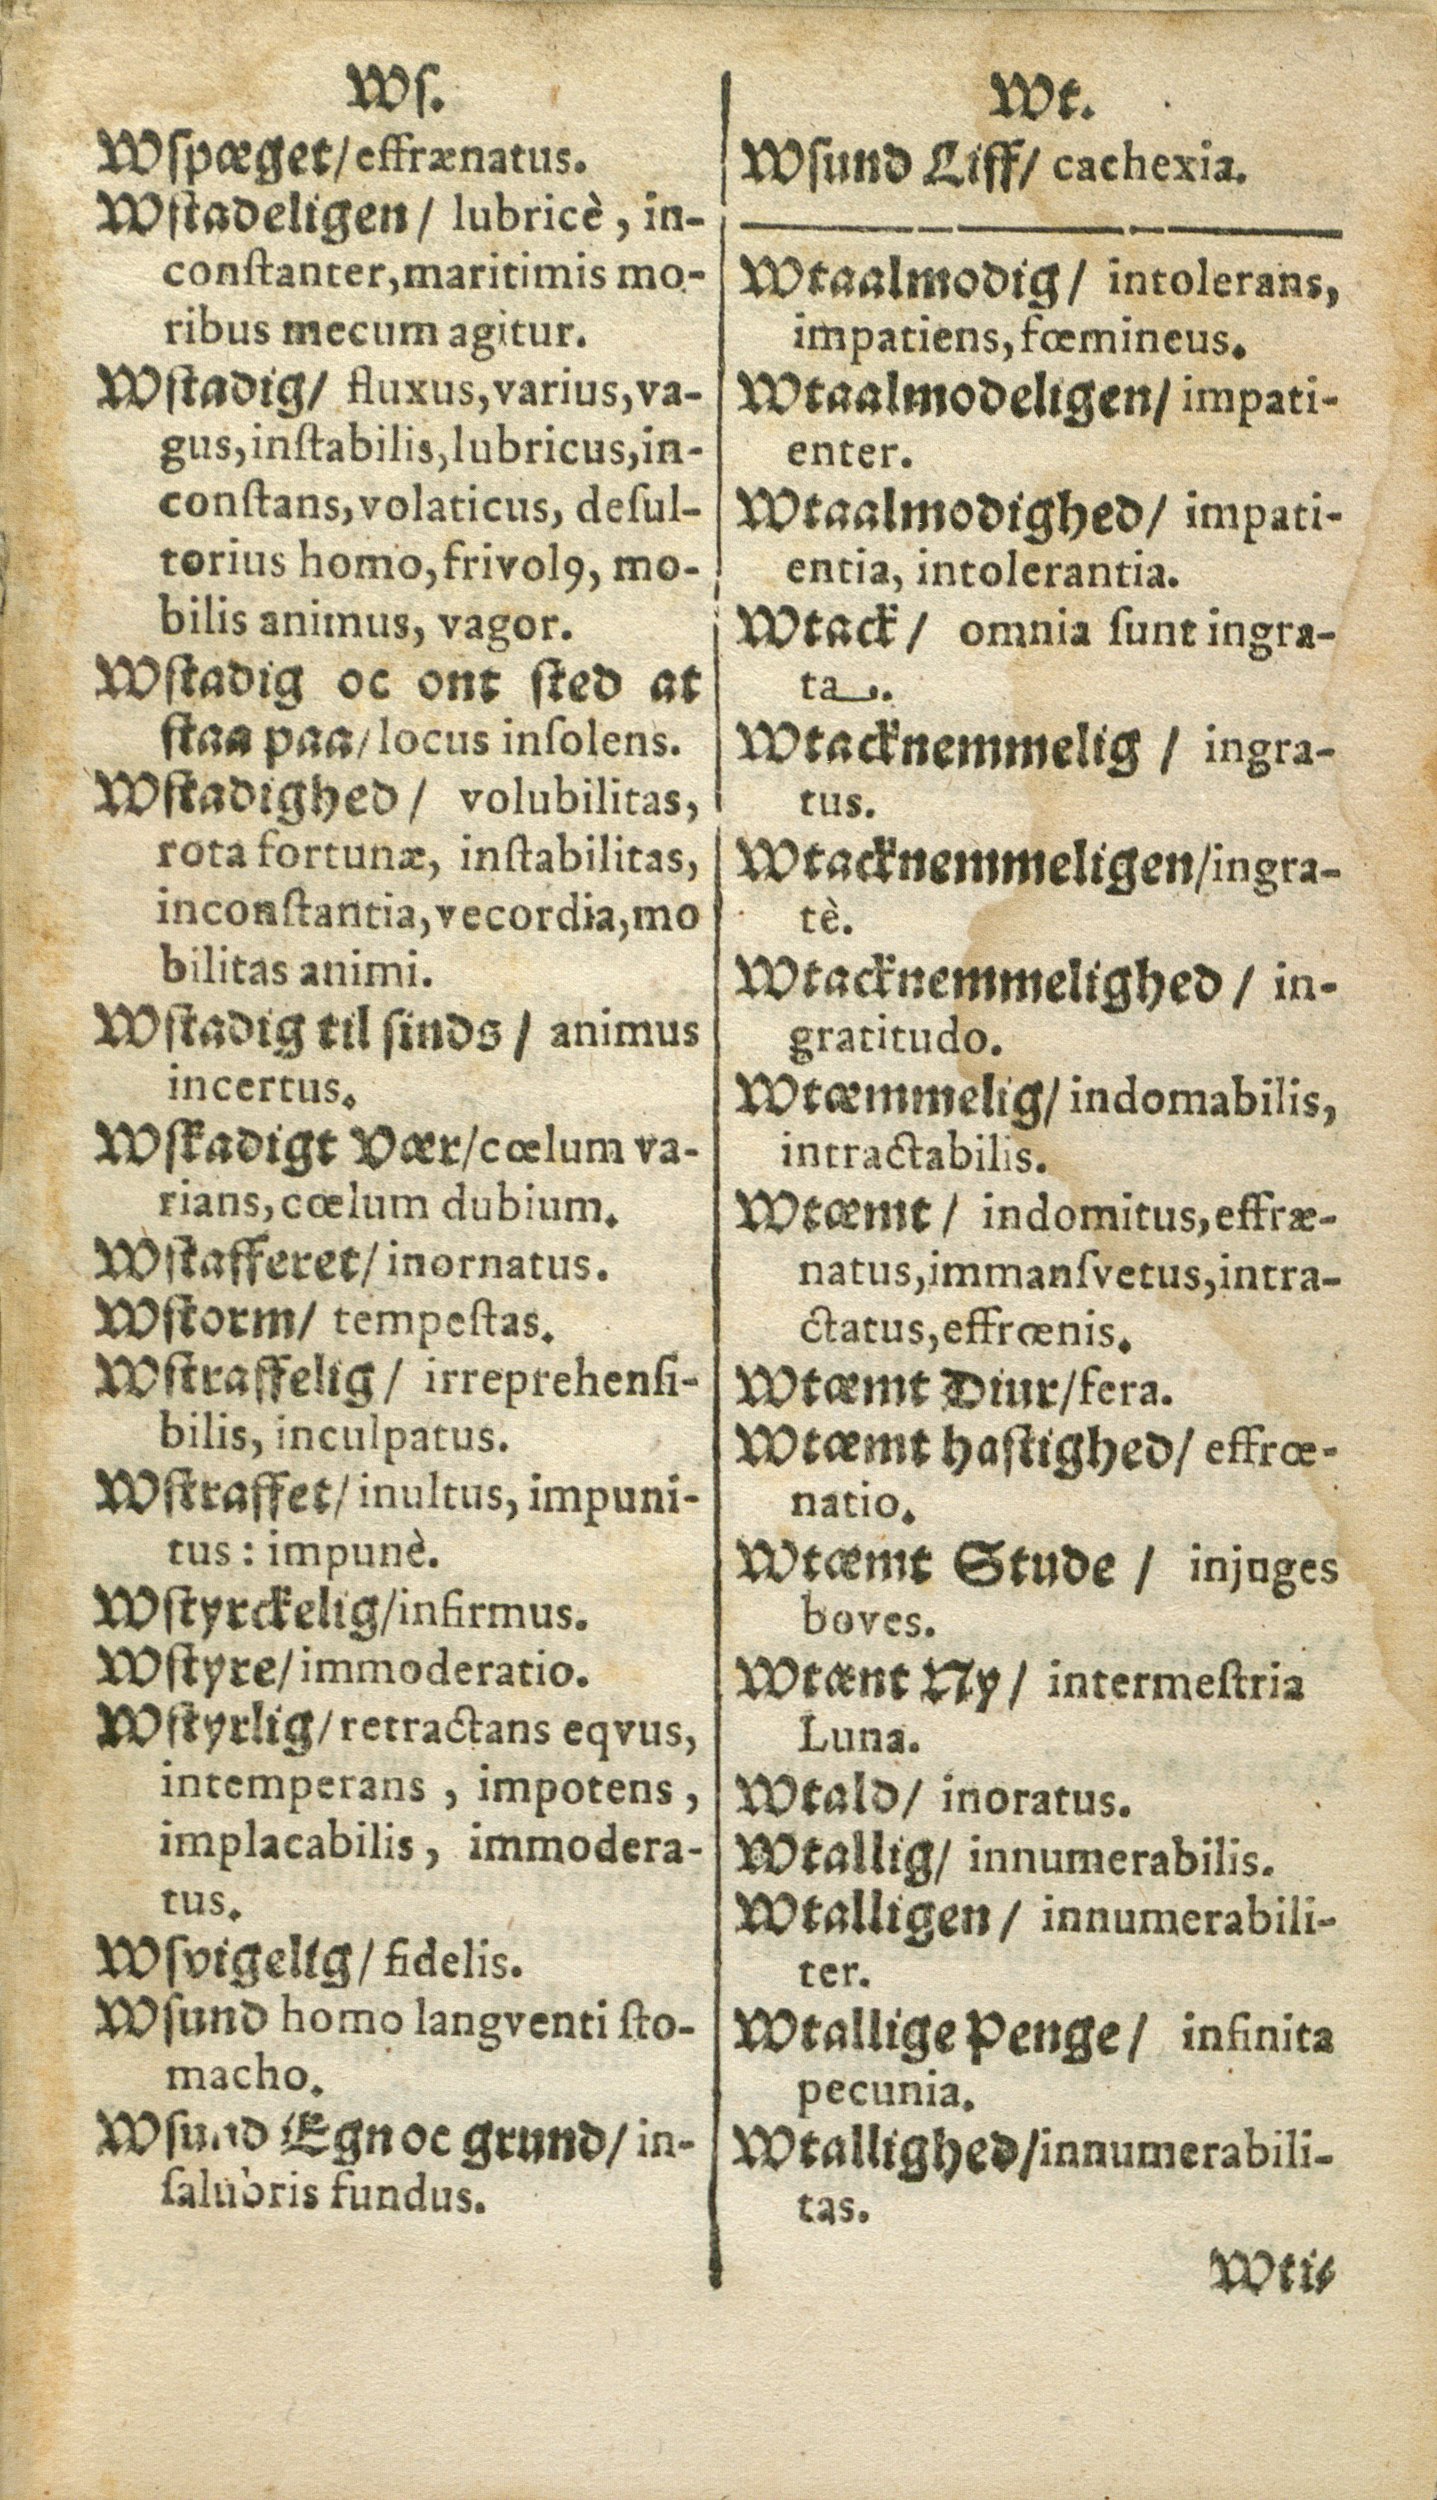 Wſ.
Wſpæget/effrænatus.
Wſtadeligen/ lubricè, in-
conſtanter,maritimis mo-
ribus mecum agitur.
Wſtadig/ fluxus,varius,va-
gus,inſtabilis,lubricus,in-
conſtans,volaticus, deſul-
torius homo,frivolꝯ, mo-
bilis animus, vagor.
Wſtadig oc ont ſted at
ſtaa paa/locus inſolens.
Wſtadighed/ volubilitas,
rota fortunæ, inſtabilitas,
inconſtantia,vecordia,mo
bilitas animi.
Wſtadig til ſinds/ animus
incertus.
Wſtadigt Vær/cœlum va-
rians,cœlum dubium.
Wſtafferet/inornatus.
Wſtorm/ tempeſtas.
Wſtraffelig/ irreprehenſi-
bilis, inculpatus.
Wſtraffet/inultus, impuni-
tus: impunè.
Wſtyrckelig/infirmus.
Wſtyre/immoderatio.
Wſtyrlig/retractans eqvus,
intemperans, impotens,
implacabilis, immodera-
tus.
Wſvigelig/fidelis.
Wſund homo langventi ſto-
macho.
Wſund Egn oc grund/in-
ſalubris fundus.
Wt.
Wſund Liff/ cachexia.
Wtaalmodig/ intolerans,
impatiens,fœmineus.
Wtaalmodeligen/impati-
enter.
Wtaalmodighed/ impati-
entia, intolerantia.
Wtack/ omnia ſunt ingra-
ta.
Wtacknemmelig/ ingra-
tus.
Wtacknemmeligen/ingra-
tè.
Wtacknemmelighed/ in-
gratitudo.
Wtæmmelig/indomabilis,
intractabilis.
Wtæmt/ indomitus,effræ-
natus,immanſvetus,intra-
ctatus,effrœnis.
Wtæmt Diur/fera.
Wtæmt haſtighed/effrœ-
natio.
Wtæmt Stude/ injuges
boves.
Wtænt Ny/ intermeſtria
Luna.
Wtald/ inoratus.
Wtallig/ innumerabilis.
Wtalligen/ innumerabili-
ter.
Wtallige Penge/ infinita
pecunia.
Wtallighed/innumerabili-
tas.
Wti-